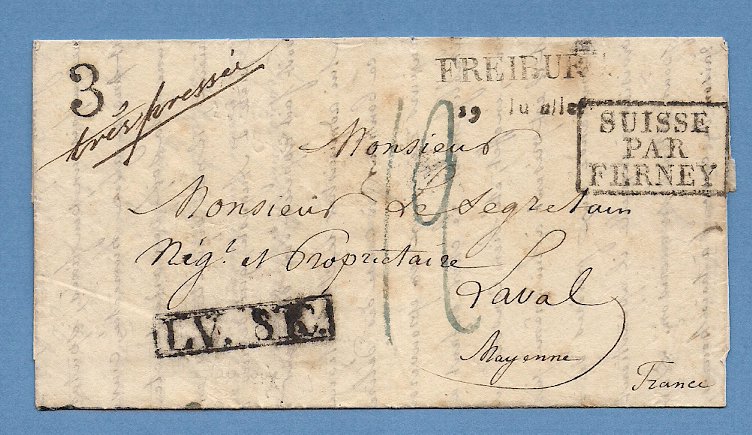 3
très pressée
FREIBUR
19 Juillet
SUISSE
PAR
FERNEY
Monsieur
Monsieur Le Segretain
Négt. et Propriétaire
Laval
L.V. 8 K.
Mayenne
France